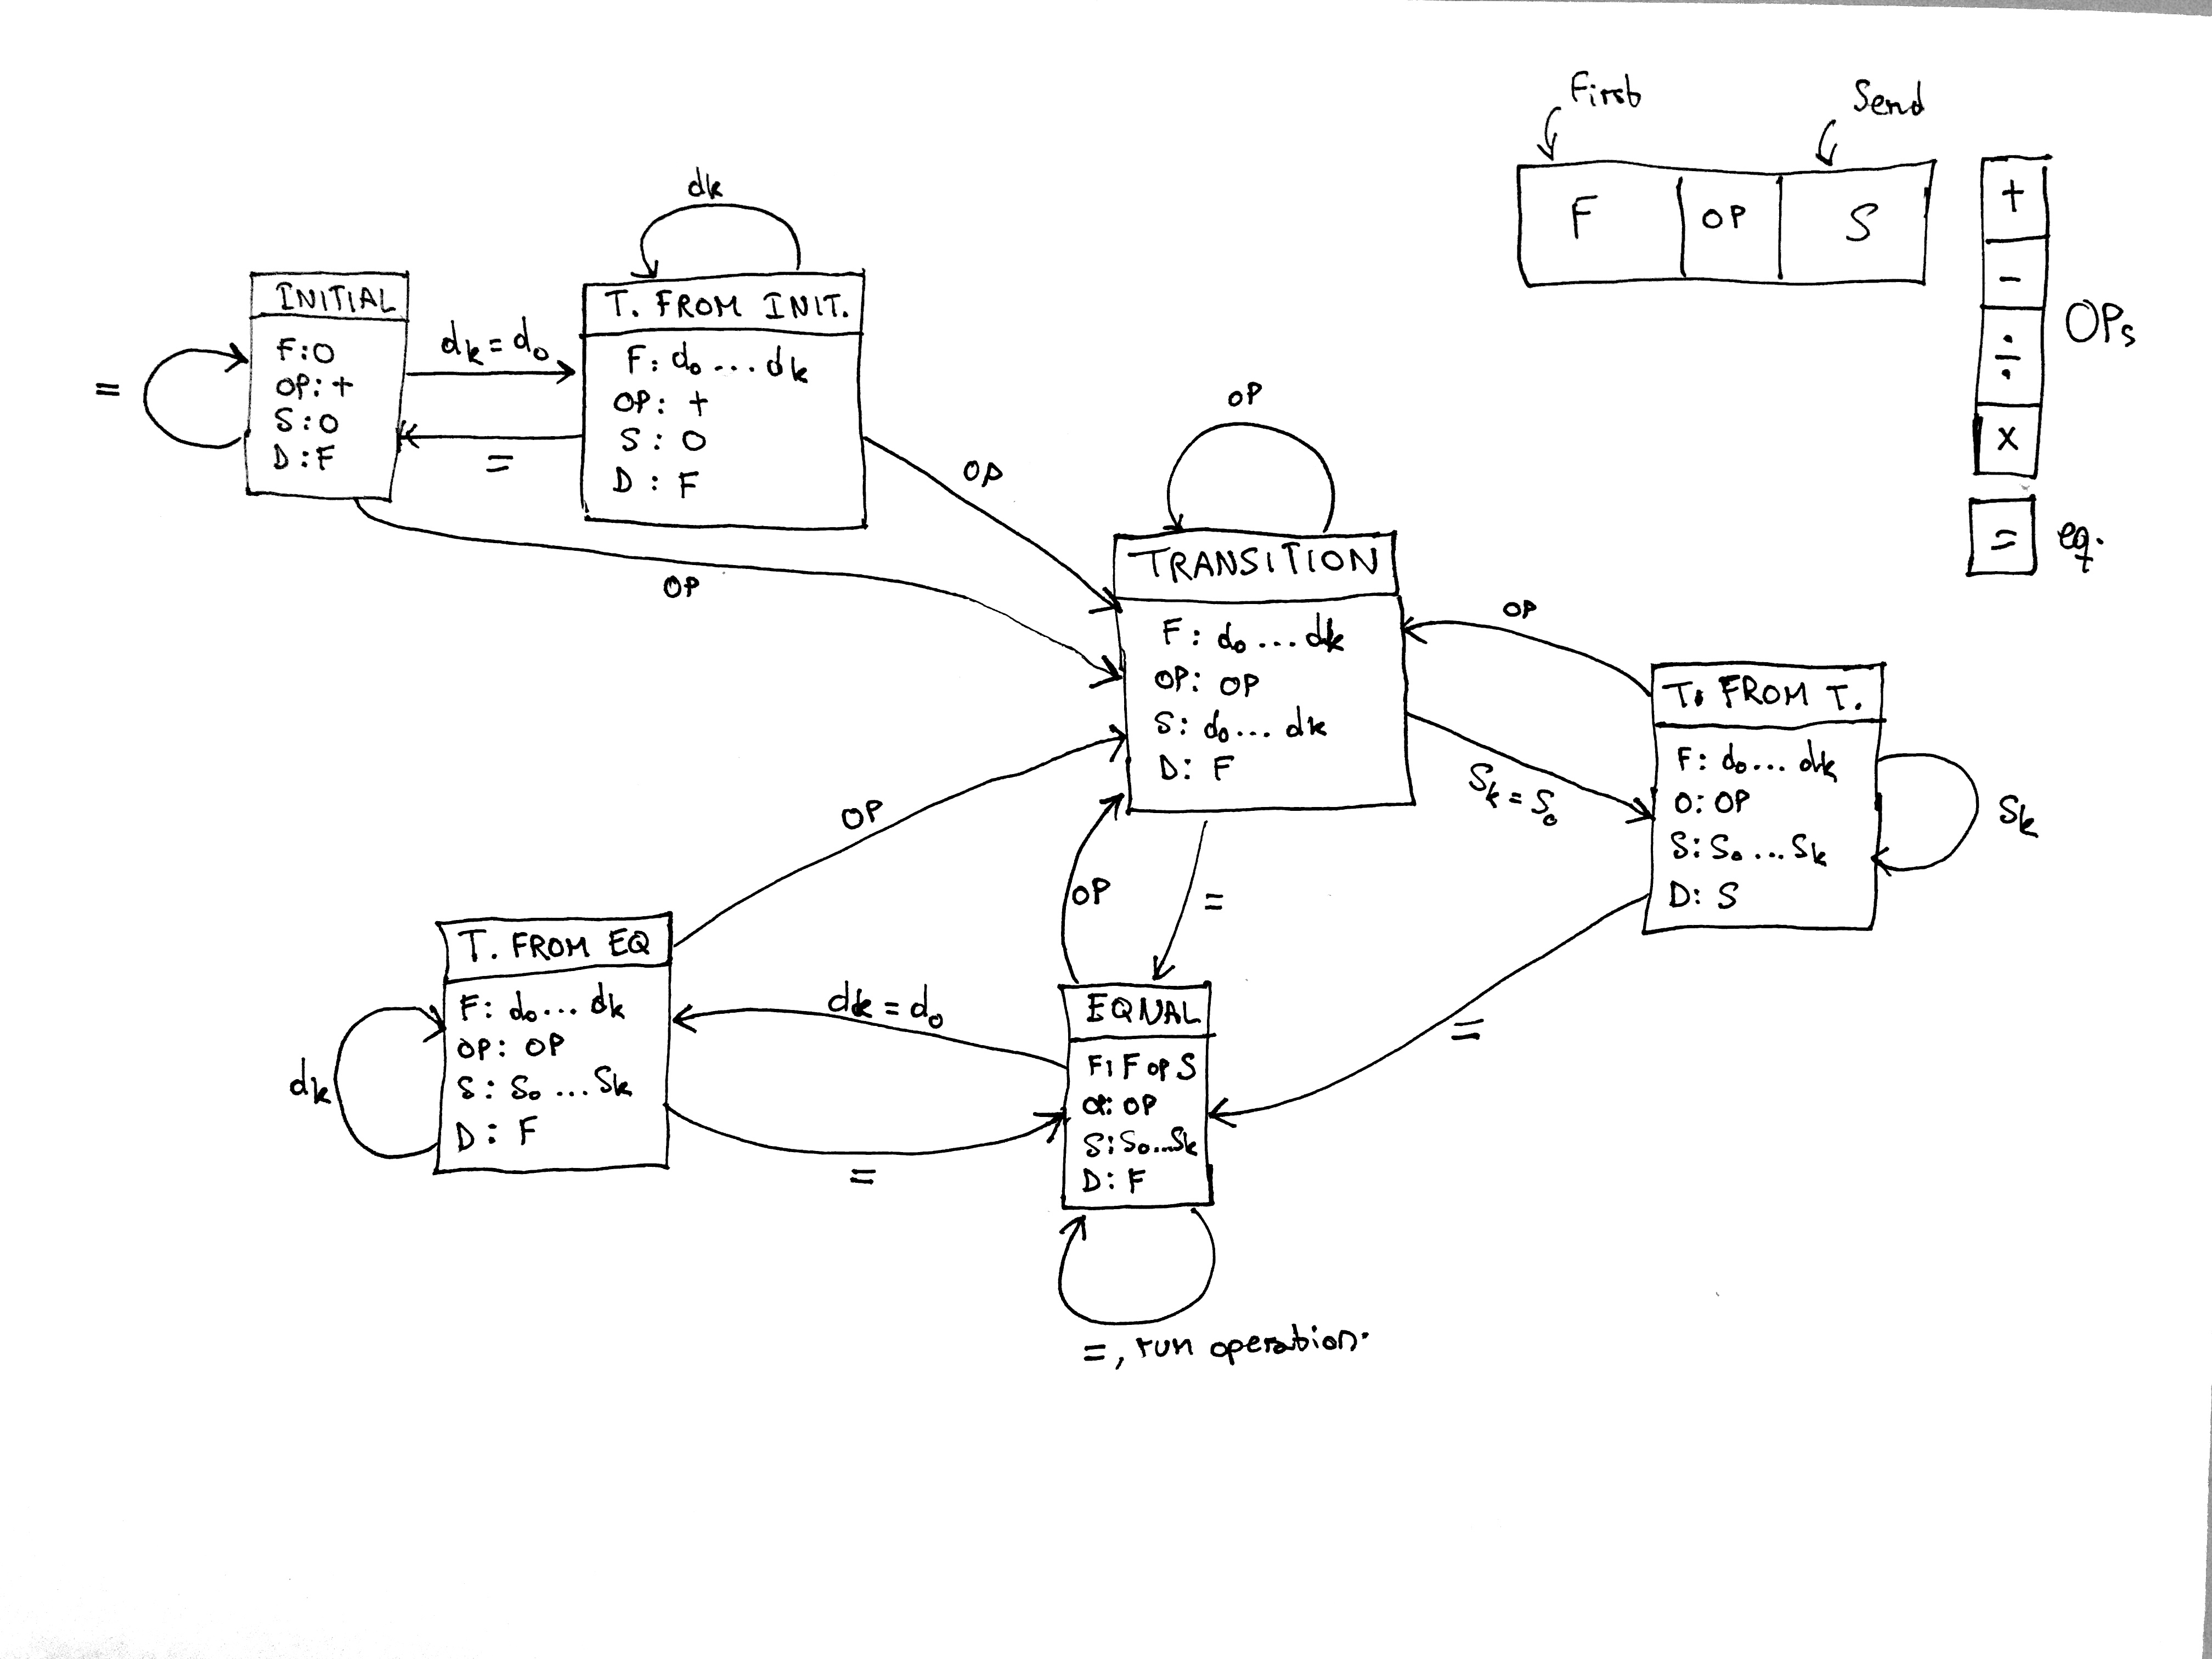 First
Send
F
OP
S
+
-
÷
x
OPs
=
eq.
dk
INITIAL
F:0
OP:+
S:0
D:F
=
dk=d0
=
T. FROM INIT.
F: d0...dk
OP: +
S: 0
D: F
OP
OP
OP
TRANSITION
F: d0...dk
OP: OP
S: d0...dk
D: F
OP
Sk=S0
T. FROM T.
F: d0...dk
O: OP
S: S0...Sk
D: S
Sk
OP
OP
=
=
T. FROM EQ
F: d0...dk
OP: OP
S: S0...Sk
D: F
dk
dk=d0
=
EQNAL
F: F op S
OP: OP
S: S0...Sk
D: F
=, run operation.